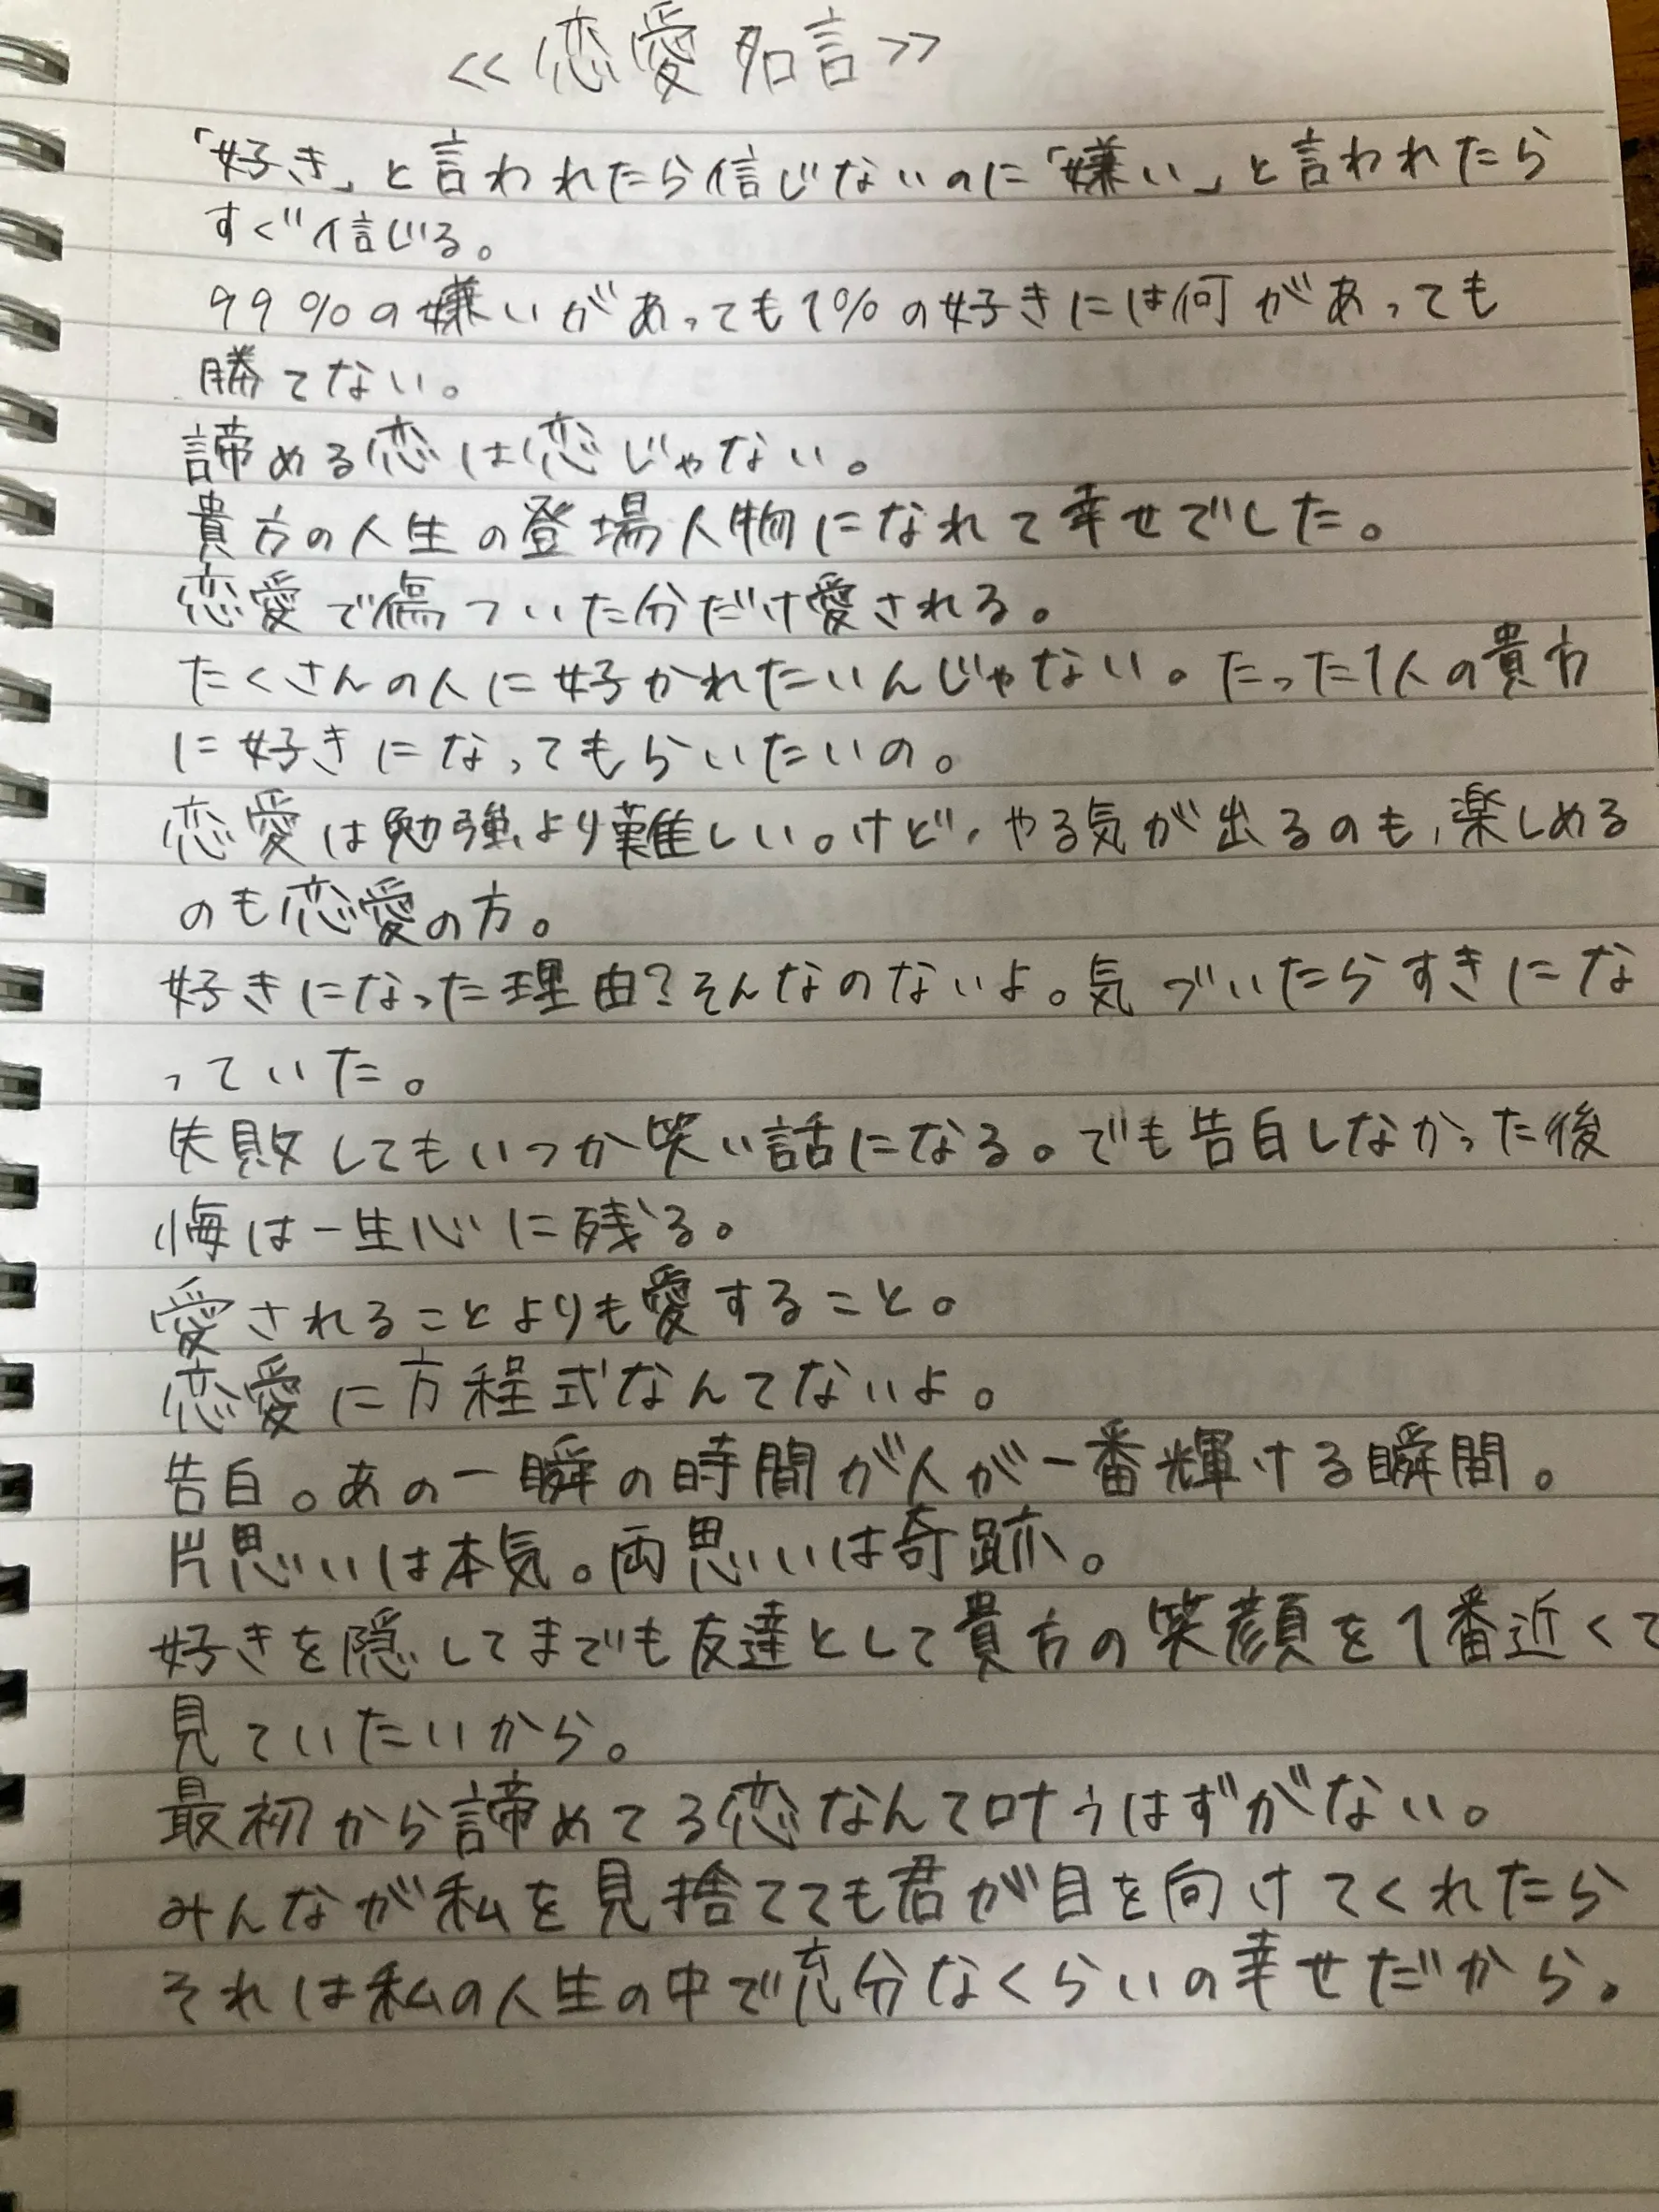 <<恋愛名言>>
「好き」と言われたら信じないのに「嫌い」と言われたら
すぐ信じる。
99%の嫌いがあっても1%の好きには何があっても
勝てない。
諦める恋は恋じゃない。
貴方の人生の登場人物になれて幸せでした。
恋愛で傷ついた分だけ愛される。
たくさんの人に好かれたいんじゃない。たった1人の貴方
に好きになってもらいたいの。
恋愛は勉強より難しい。けど、やる気が出るのも、楽しめる
のも恋愛の方。
好きになった理由?そんなのないよ。気づいたらすきにな
っていた。
失敗してもいつか笑い話になる。でも告白しなかった後
悔は一生心に残る。
愛されることよりも愛すること。
恋愛に方程式なんてないよ。
告白。あの一瞬の時間が人が一番輝ける瞬間。
片思いは本気。両思いは奇跡。
好きを隠してまでも友達として貴方の笑顔を1番近くで
見ていたいから。
最初から諦めてる恋なんて叶うはずがない。
みんなが私を見捨てても君が目を向けてくれたら
それは私の人生の中で充分なくらいの幸せだから。